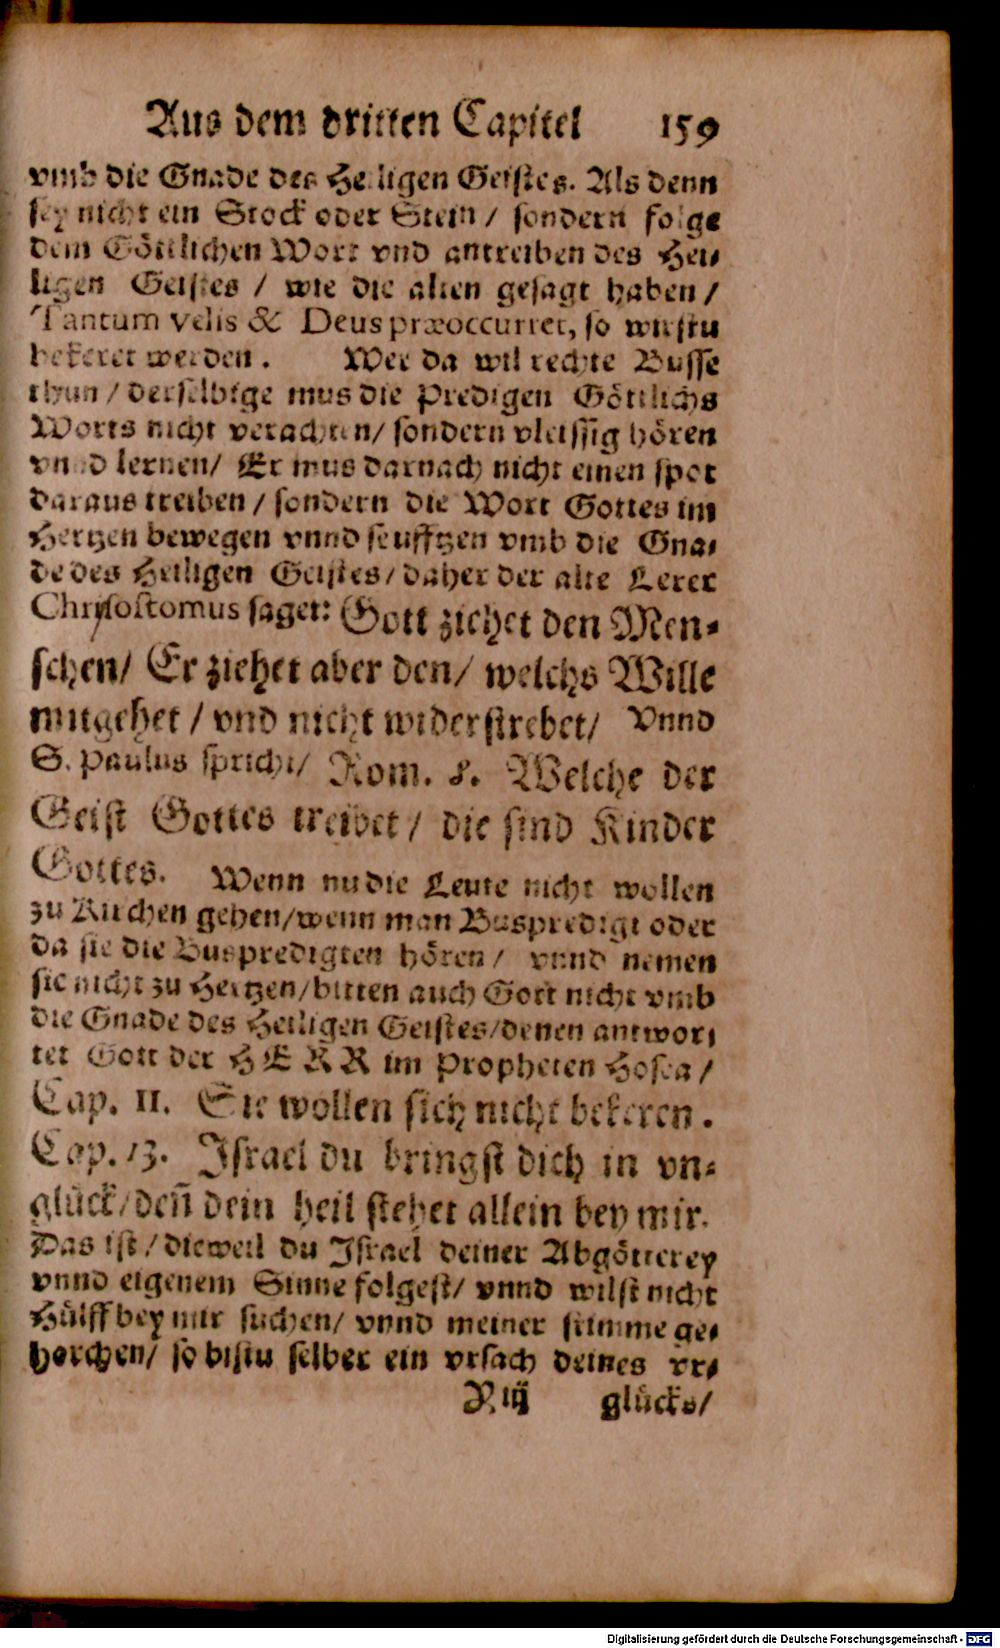 Aus dem dritten Capitel 159
vmb die Gnade des Heiligen Geistes. Als denn
sey nicht ein Stock oder Stein / sondern folge
dem Göttlichen Wort vnd antreiben des Hei-
ligen Geistes / wie die alten gesagt haben /
Tantum velis & Deus præoccurret, so wirstu
bekeret werden. Wer da wil rechte Busse
thun / derselbige mus die Predigen Göttlichs
Worts nicht verachten / sondern vleissig hören
vnnd lernen / Er mus darnach nicht einen spot
daraus treiben / sondern die Wort Gottes im
Hertzen bewegen vnnd seufftzen vmb die Gna-
de des Heiligen Geistes / daher der alte Lerer
Chrysostomus saget: Gott ziehet den Men-
schen / Er ziehet aber den / welchs Wille
mitgehet / vnd nicht widerstrebet / Vnnd
S. Paulus spricht / Rom. 8. Welche der
Geist Gottes treibet / die sind Kinder
Gottes. Wenn nu die Leute nicht wollen
zu Kirchen gehen / wenn man Buspredigt oder
da sie die Buspredigten hören / vnnd nemen
sie nicht zu Hertzen / bitten auch Gott nicht vmb
die Gnade des Heiligen Geistes / denen antwor-
tet Gott der HERR im Propheten Hosea /
Cap. 11. Sie wollen sich nicht bekeren.
Cap. 13. Israel du bringst dich in vn-
glück / deñ dein heil stehet allein bey mir.
Das ist / dieweil du Israel deiner Abgötterey
vnnd eigenem Sinne folgest / vnnd wilst nicht
Hülff bey mir suchen / vnnd meiner stimme ge-
horchen / so bistu selber ein vrsach deines vn-
R iij glücks /
Digitalisierung gefördert durch die Deutsche Forschungsgemeinschaft - DFG